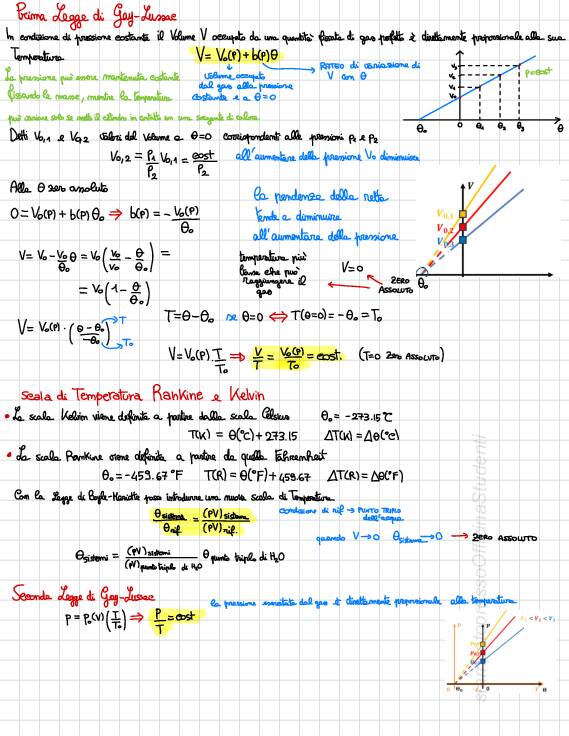 Prima Legge di Gay-Lussac
In condizione di pressione costante il Volume V occupato da una quantità fissata di gas perfetto è direttamente proporzionale alla sua
Temperatura V = V₀(P) + b(P)θ
volume occupato dal gas alla pressione costante e a θ=0
RATEO di variazione di V con θ
La pressione può essere mantenuta costante
fissando la massa, mentre la temperatura
può variare solo se metto il cilindro in contatto con una sorgente di calore
P=cost
θ₀ 0 θ₁ θ₂ θ₃ θ
Detti V₀,₁ e V₀,₂ valori del Volume a θ=0 corrispondenti alle pressioni P₁ e P₂
V₀,₂ = P₁/P₂ V₀,₁ = cost/P₂ all'aumentare della pressione V₀ diminuisce
Alla θ zero assoluto
0 = V₀(P) + b(P)θ₀ ⇒ b(P) = -V₀(P)/θ₀
la pendenza della retta
tende a diminuire
all'aumentare della pressione
V
V₀,₁
V₀,₂
V₀,₃
θ₀
V = V₀ - V₀/θ₀ θ = V₀(V₀/V₀ - θ/θ₀) =
= V₀(1 - θ/θ₀)
temperatura più bassa che può raggiungere il gas
V=0
ZERO ASSOLUTO
V = V₀(P)·(θ-θ₀/-θ₀) T T₀
T = θ-θ₀ se θ=0 ⇔ T(θ=0) = -θ₀ = T₀
V = V₀(P) T/T₀ ⇒ V/T = V₀(P)/T₀ = cost. (T=0 ZERO ASSOLUTO)
scala di Temperatura Rankine e Kelvin
• La scala Kelvin viene definita a partire dalla scala Celsius θ₀ = -273.15°C
T(K) = θ(°C)+273.15 ΔT(K) = Δθ(°C)
• La scala Rankine viene definita a partire da quella Fahrenheit
θ₀ = -459.67°F T(R) = θ(°F)+459.67 ΔT(R) = Δθ(°F)
Con la Legge di Boyle-Mariotte posso introdurre una nuova scala di Temperatura
θsistema/θrif. = (PV)sistema/(PV)rif.
condizione di rif → PUNTO TRIPLO dell'acqua
quando V→0 θsistema→0 → ZERO ASSOLUTO
θsistemi = (PV)sistemi/(PV)punto triplo di H₂O θ punto triplo di H₂O
Seconda Legge di Gay-Lussac
la pressione esercitata dal gas è direttamente proporzionale alla temperatura
P = P₀(V)(T/T₀) ⇒ P/T = cost
P P V₁<V₂<V₃
θ₀ 0 T θ